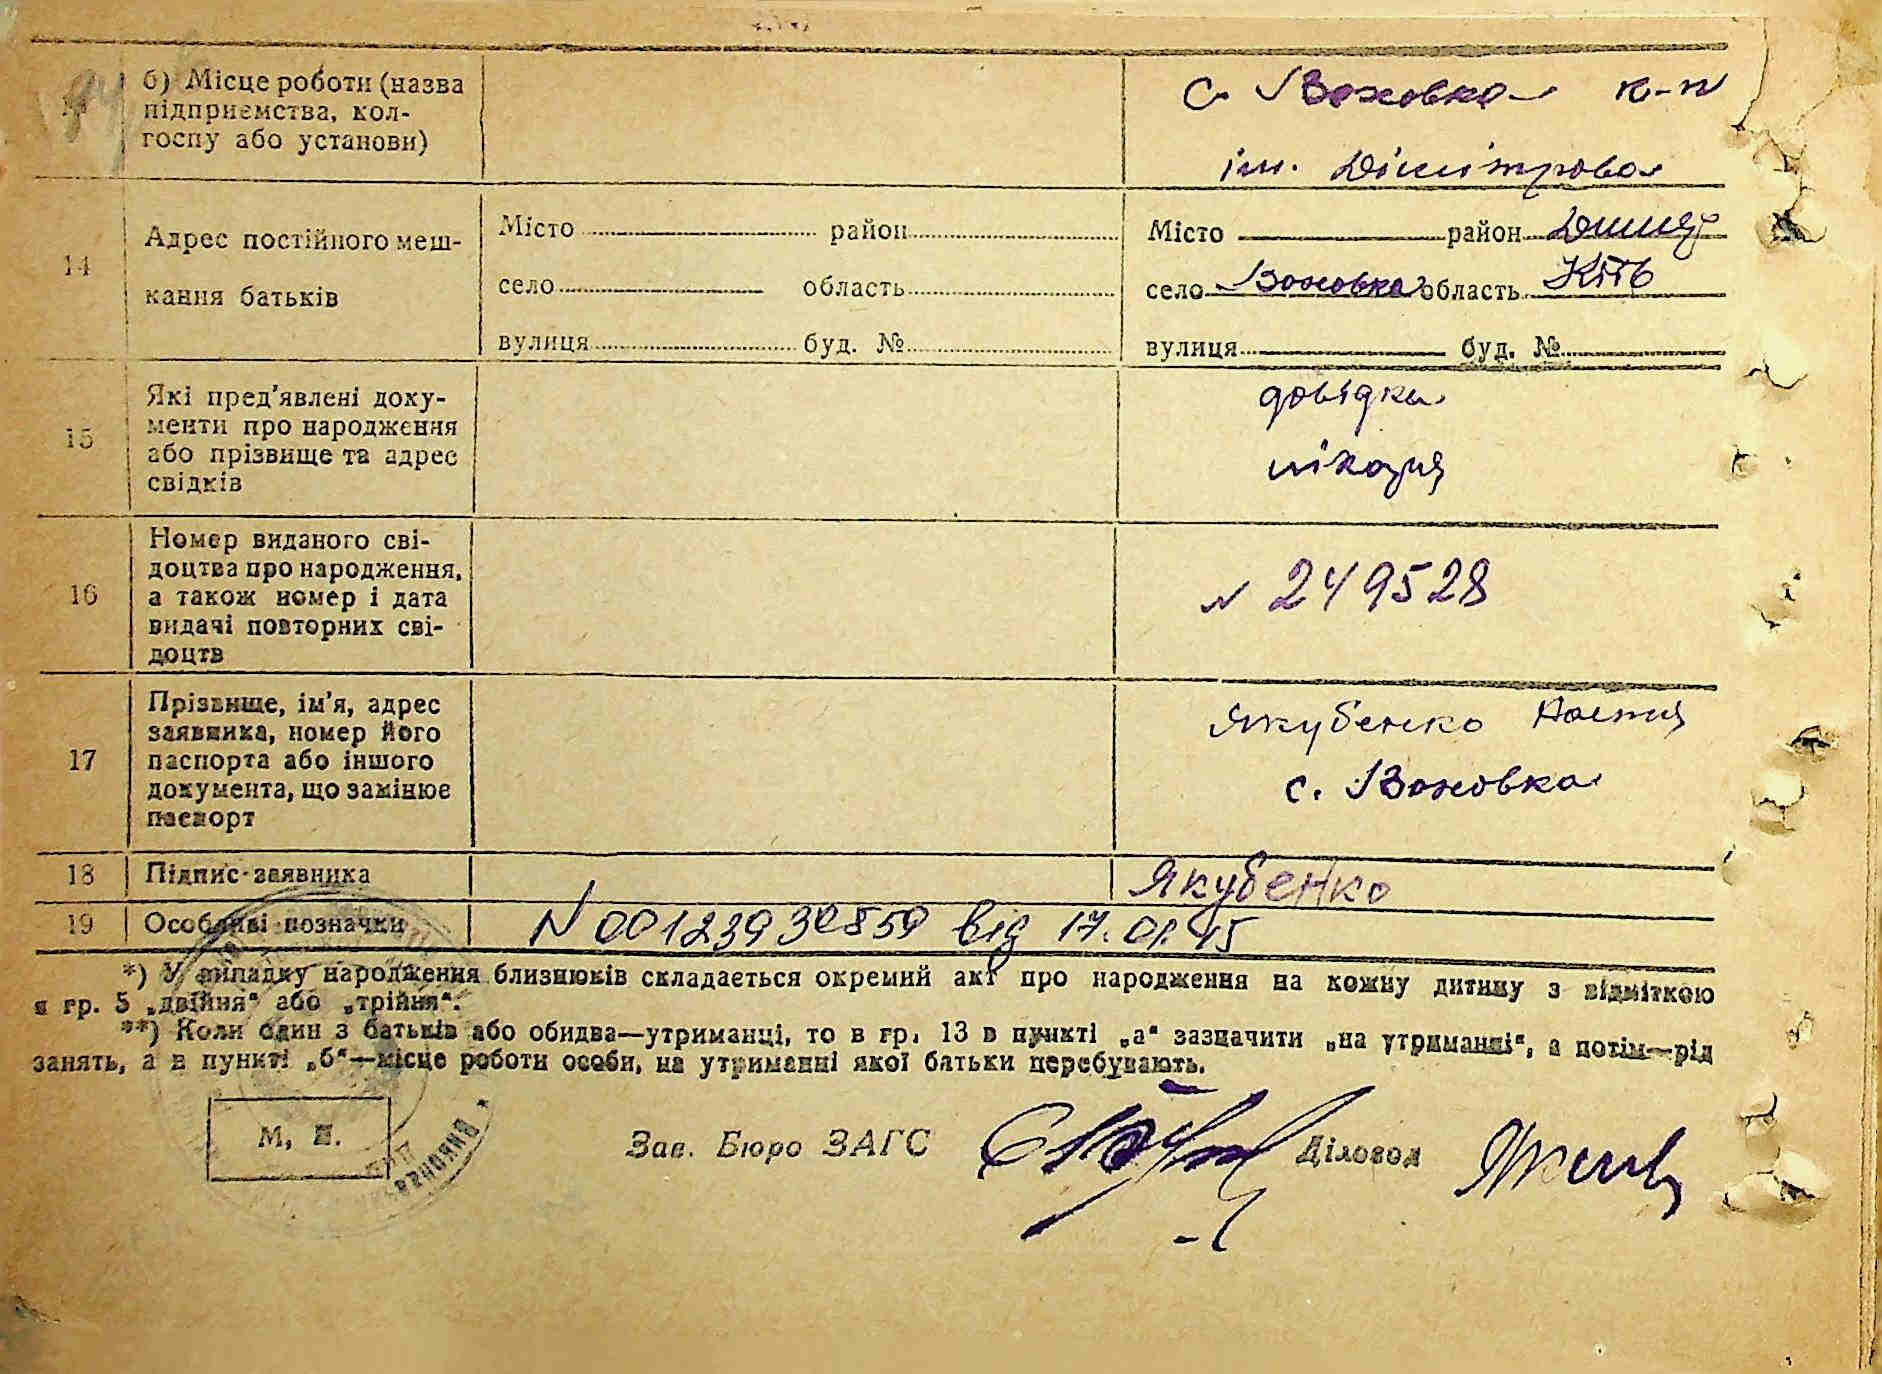 б) Місце роботи (назва
підприємства, кол-
госпу або установи)
с. Воховка к-п
ім. Дімітрова
14
Адрес постійного меш-
кання батьків
Місто район
село область
вулиця буд. №
Місто район
село Воховка область
вулиця буд. №
15
Які пред'явлені доку-
менти про народження
або прізвище та адрес
свідків
довідка
16
Номер виданого сві-
доцтва про народження,
а також номер і дата
видачі повторних сві-
доцтв
N 249528
17
Прізвище, ім'я, адрес
заявника, номер його
паспорта або іншого
документа, що замінює
паспорт
Якубенко Настя
с. Воховка
18 Підпис заявника
Якубенко
19 Особливі позначки
N 00123930859 від 17.01.15
*) У випадку народження близнюків складається окремий акт про народження на кожну дитину з відміткою
в гр. 5 „двійня" або „трійня".
**) Коли один з батьків або обидва—утриманці, то в гр. 13 в пункті „а" зазначити „на утриманні", а потім—рід
занять, а в пункті „б"—місце роботи особи, на утриманні якої батьки перебувають.
М. П.
Зав. Бюро ЗАГС
Діловод